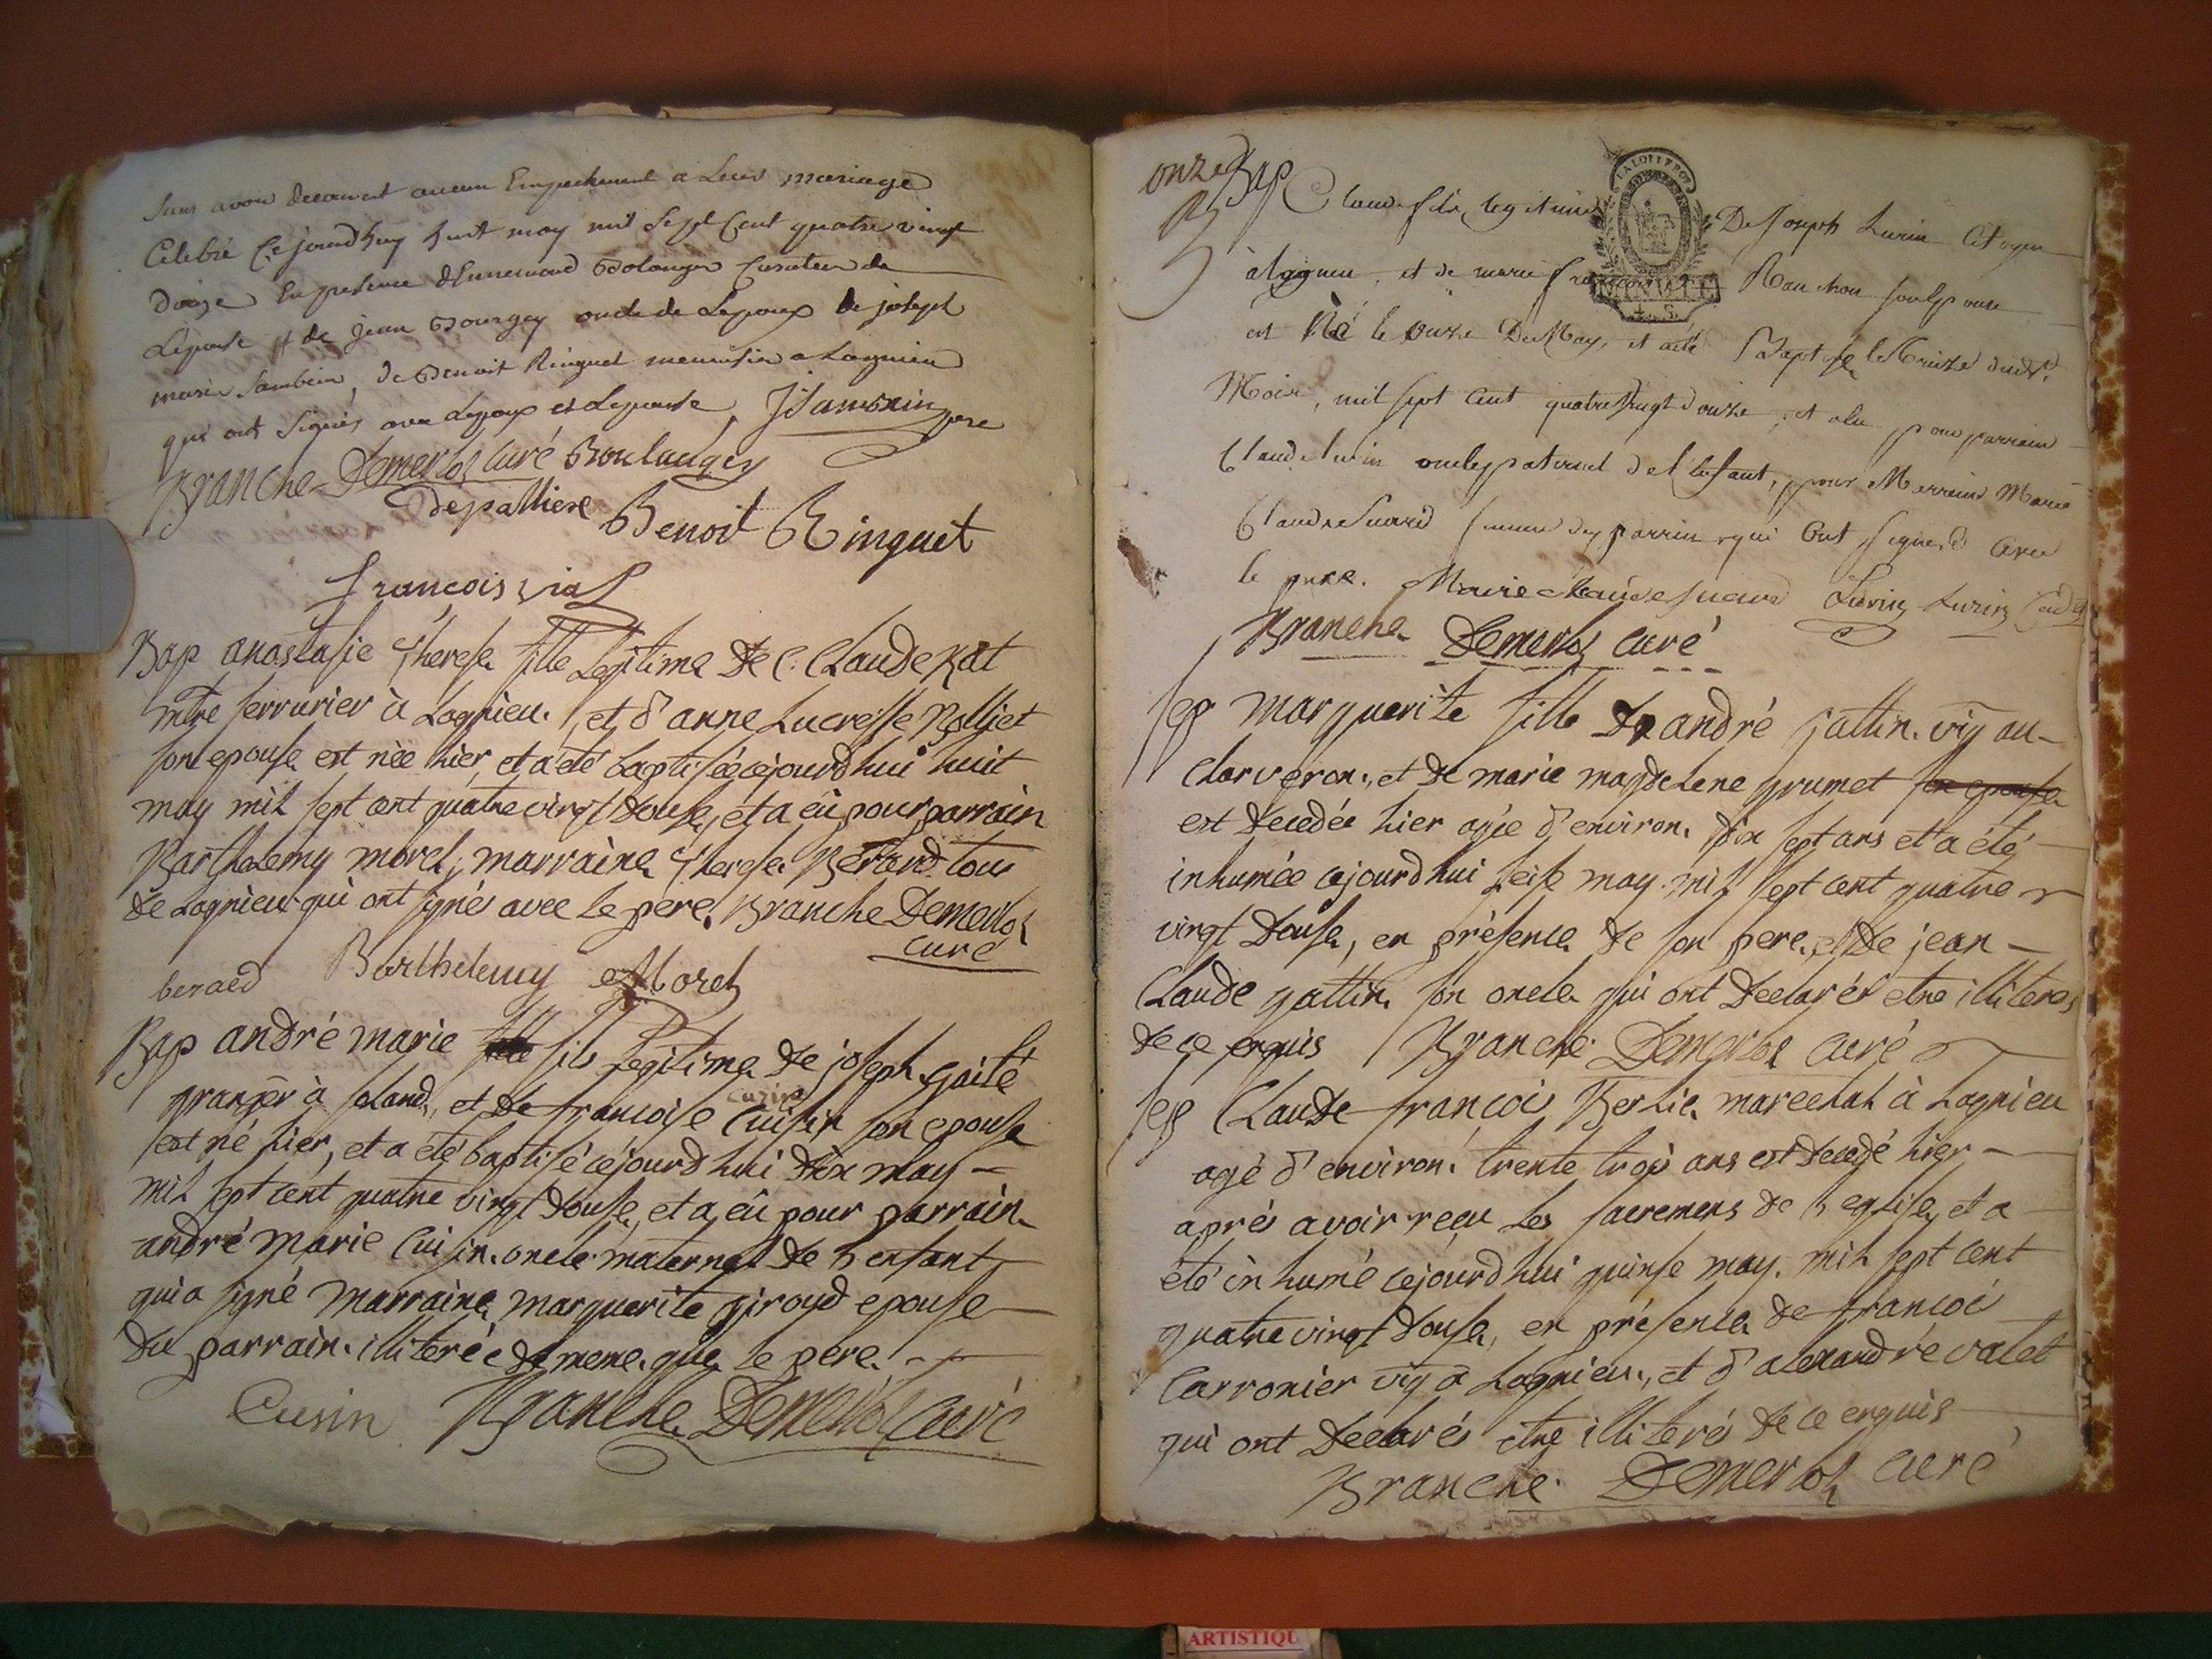 Sans avoir decouvert aucun Empechement a Leur mariage
Celebré Cejourdhuy huit may mil Sept Cent quatre vingt
douze En presence d'Ennemond Bolanger Curateur de
Lepouse et de jean Bourgey oncle de Lepoux de joseph
marie Sambin, de Benoit Ringuet menuisier a Lagnieu
qui ont Signés avec Lepoux et Lepouse, JSambain pere
Branche Demerloz curé Boulangey
depalliere Benoit Ringuet
françois vial
Bap anastasie therese fille Legitime de C. Claude Rat
mtre serrurier à Lagnieu, et d'anne Lucresse Nolliet
son epouse est née hier, et a été baptisée cejourdhui huit
may mil sept cent quatre vingt douse, et a eü pour parrain
Barthelemy morel, marraine therese Bérard tous
de Lagnieu qui ont signés avec le pere. Branche Demerloz
curé
berard Barthelemy Morel
Bap andré marie fille fils Legitime de joseph gaité
granger à poland, et de françoise Cuisin son epouse
Cuzin
est né hier, et a été baptisé cejourdhui dix may
mil sept cent quatre vingt douse, et a eü pour parrain
andré marie Cuisin oncle maternel de l'enfant
qui a signé marraine marguerite giroud epouse
du parrain illiterée de meme que le pere.
Cusin Branche Demerloz curé
onze
Bap Claude fils legitime De Joseph Luzin Citoyen
à lagnieu, et de marie françoise Ranchon son epouse
est Né le onze De May, et a été Baptisé le treize dudt
Mois, mil sept cent quatre vingt douze, et a eu pour parrain
Claude luzin oncle paternel de l'enfant, pour Marraine Marie
Claudre Suard femme du parrin, qui Ont signés avec
le pere. Marie Claude suard Luzin Luzin Cadet
Branche Demerloz curé
sep marguerite fille de andré gattin vig au
clarveron, et de marie magdelene grumet son epouse
est decedée hier agée d'environ dix sept ans et a été
inhumée cejourdhui seise may mil sept cent quatre
vingt douse, en présence de son pere et de jean
Claude gattin son oncle qui ont declarés etre illiterés
de ce enquis Branche Demerloz curé
sep Claude françois Berlie marechal à Lagnieu
agé d'environ trente trois ans est decedé hier
aprés avoir recu les sacremens de l'eglise, et a
été inhumé cejourdhui quinse may mil sept cent
quatre vingt douse, en présence de françois
Carronier vig a Lagnieu, et d'alexandre valet
qui ont declarés etre illiterés de ce enquis
Branche Demerloz curé
LA LOI ET LE ROI
4. S.
ARTISTIQU